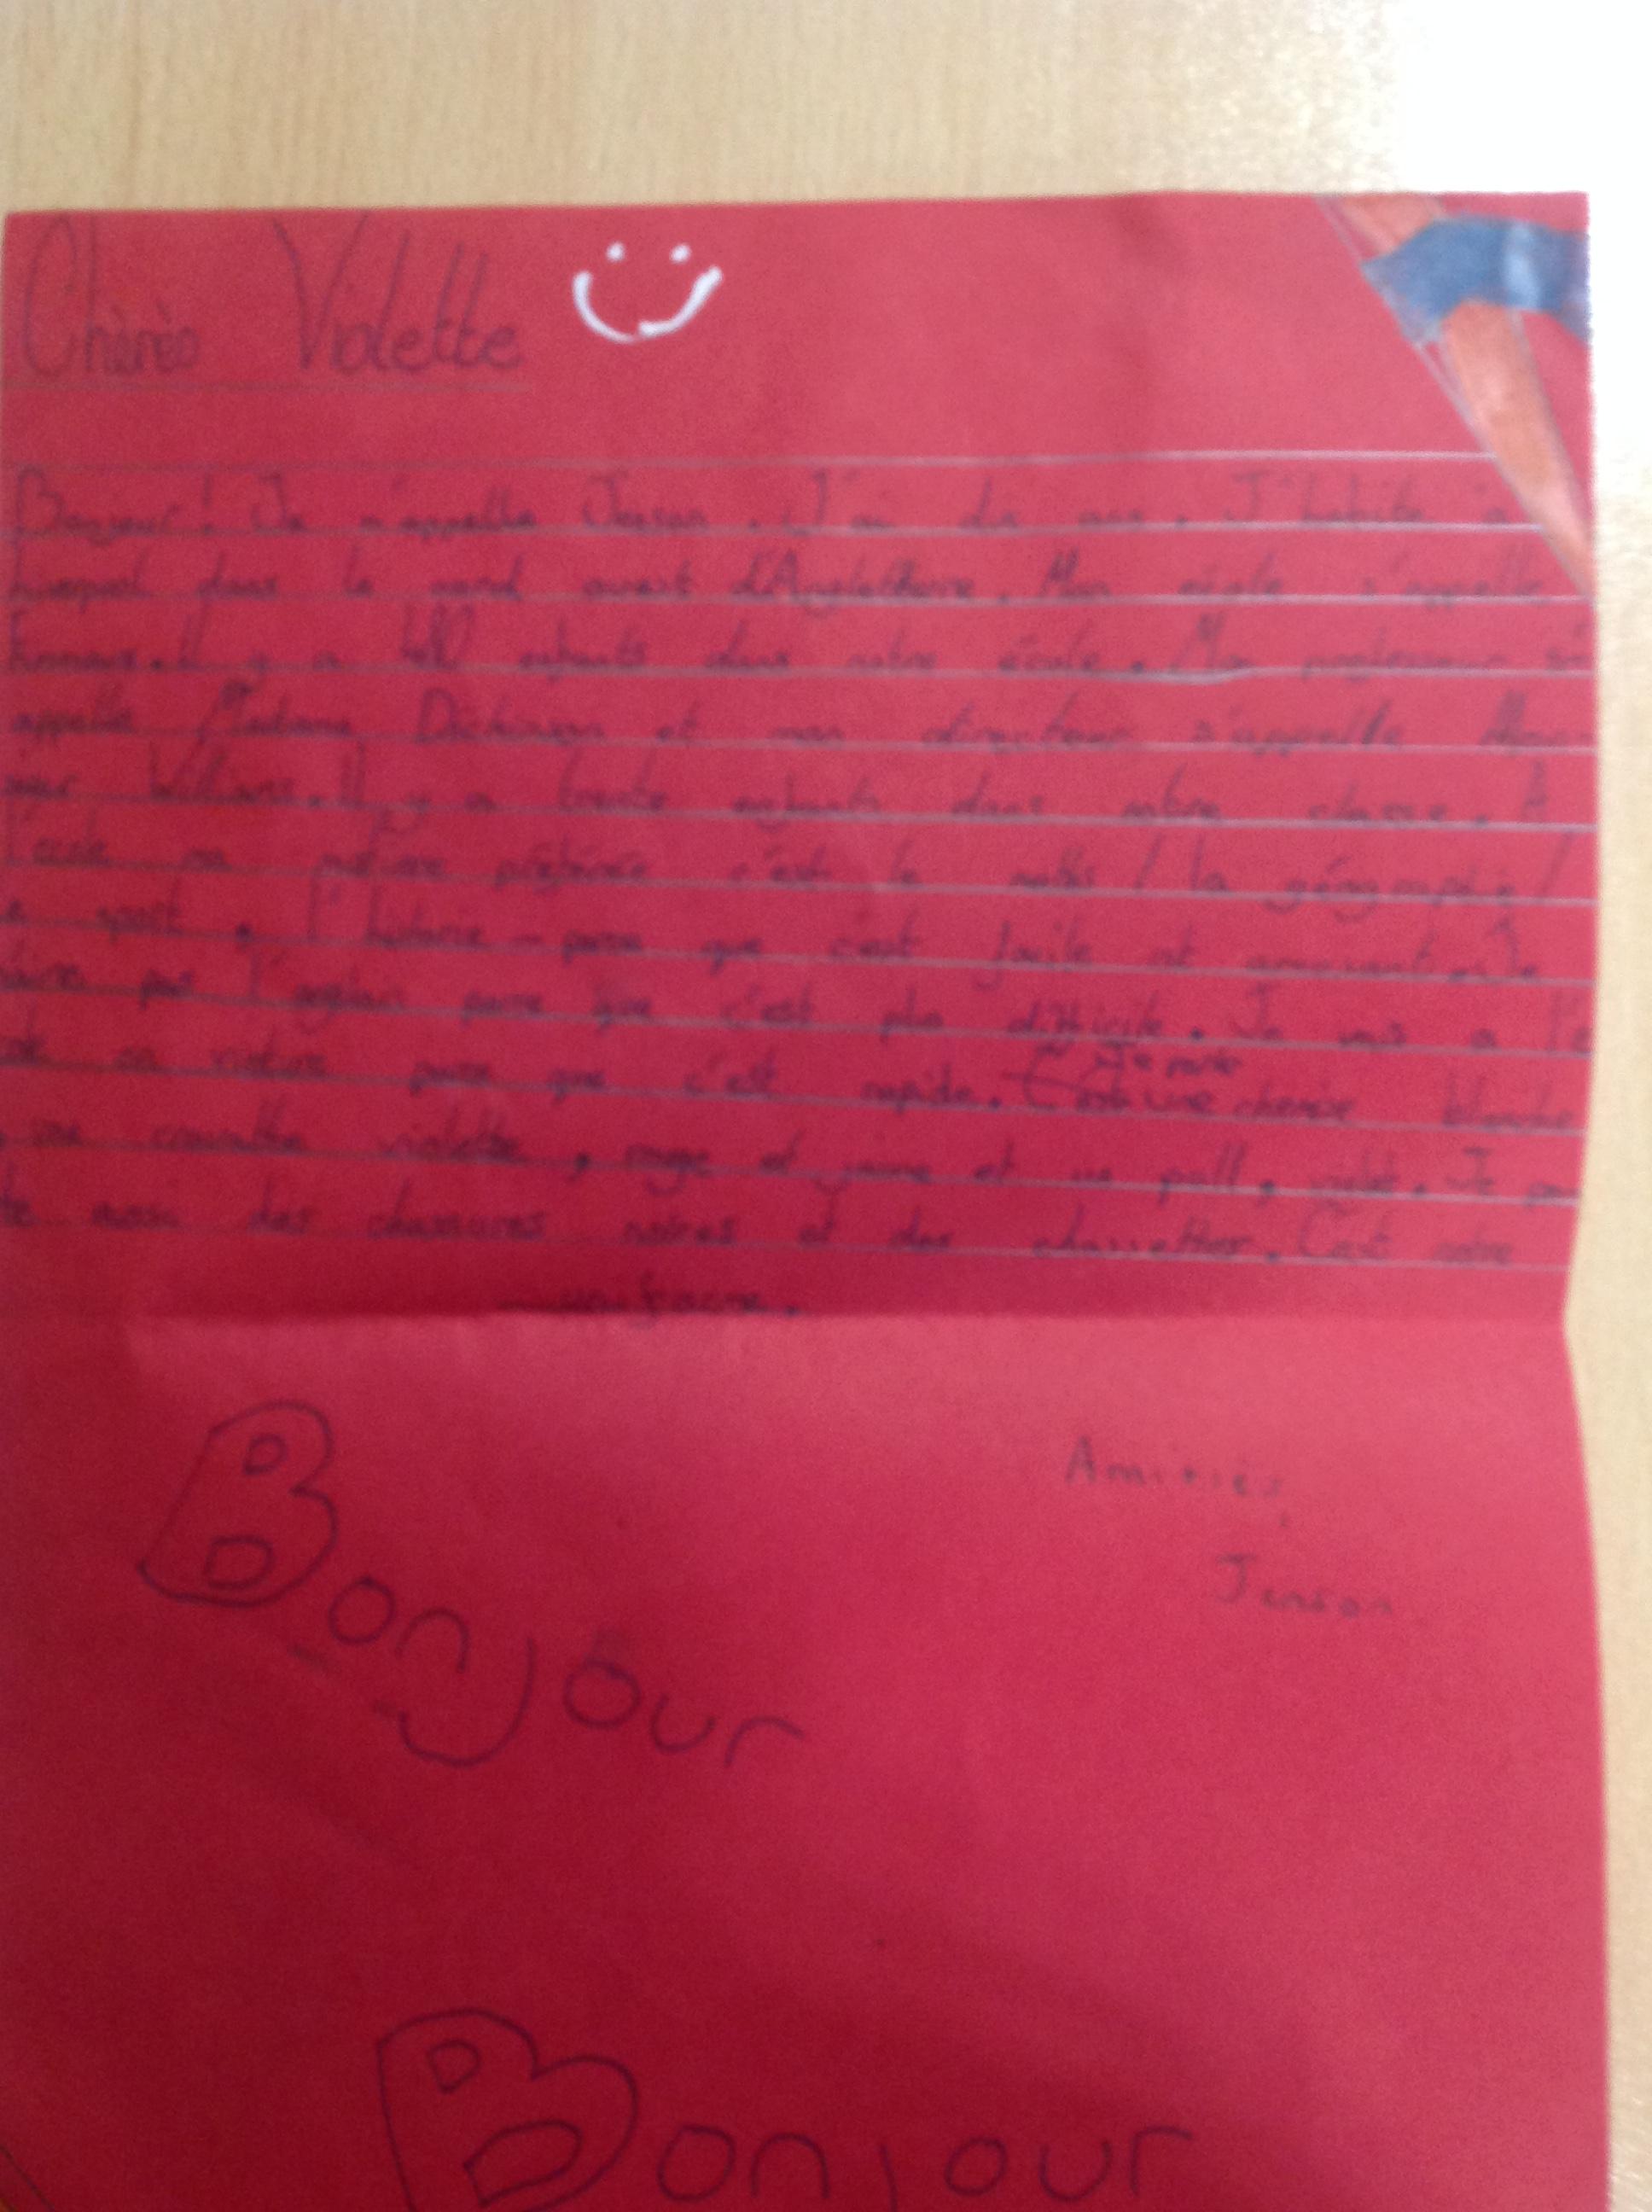 Violette
Bonjour! Je m'appelle Jenson. J'ai dix ans. J'habite à
Liverpool dans le nord ouest d'Angleterre. Mon école s'appelle
Emmaus. Il y a 480 enfants dans notre école. Mon professeur s'
appelle Madame Dickinson et mon directeur s'appelle Mon-
sieur Williams. Il y a trente enfants dans notre classe. A
l'école ma matière préférée c'est le maths / la géographie /
le sport, l'histoire - parce que c'est facile et amusant. Je
n'aime pas l'anglais parce que c'est plus difficile. Je vais a l'é
cole en voiture parce que c'est rapide. Je porte une chemise blanche
une cravatte violette, rouge et jaune et un pull violet. Je por
te aussi des chaussures noires et des chaussettes. C'est notre
uniforme.
Amitiés,
Jenson
Bonjour
Bonjour